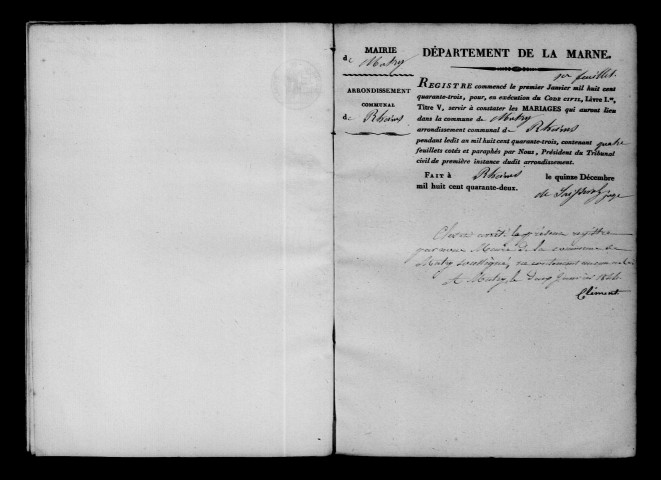 MAIRIE
de Mutry
ARRONDISSEMENT
COMMUNAL
de Rheims
DÉPARTEMENT DE LA MARNE.
1er feuillet.
REGISTRE commencé le premier Janvier mil huit cent
quarante-trois, pour, en exécution du CODE CIVIL, Livre I.er,
Titre V, servir à constater les MARIAGES qui auront lieu
dans la commune de Mutry
arrondissement communal de Rheims
pendant ledit an mil huit cent quarante-trois, contenant quatre
feuillets cotés et paraphés par Nous, Président du Tribunal
civil de première instance dudit arrondissement.
FAIT à Rheims le quinze Décembre
mil huit cent quarante-deux.
juge
Clos et arrêté le présent registre
par nous Maire de la commune de
Mutry soussigné, ne contenant aucun
A Mutry, le deux Janvier 1844.
Clément